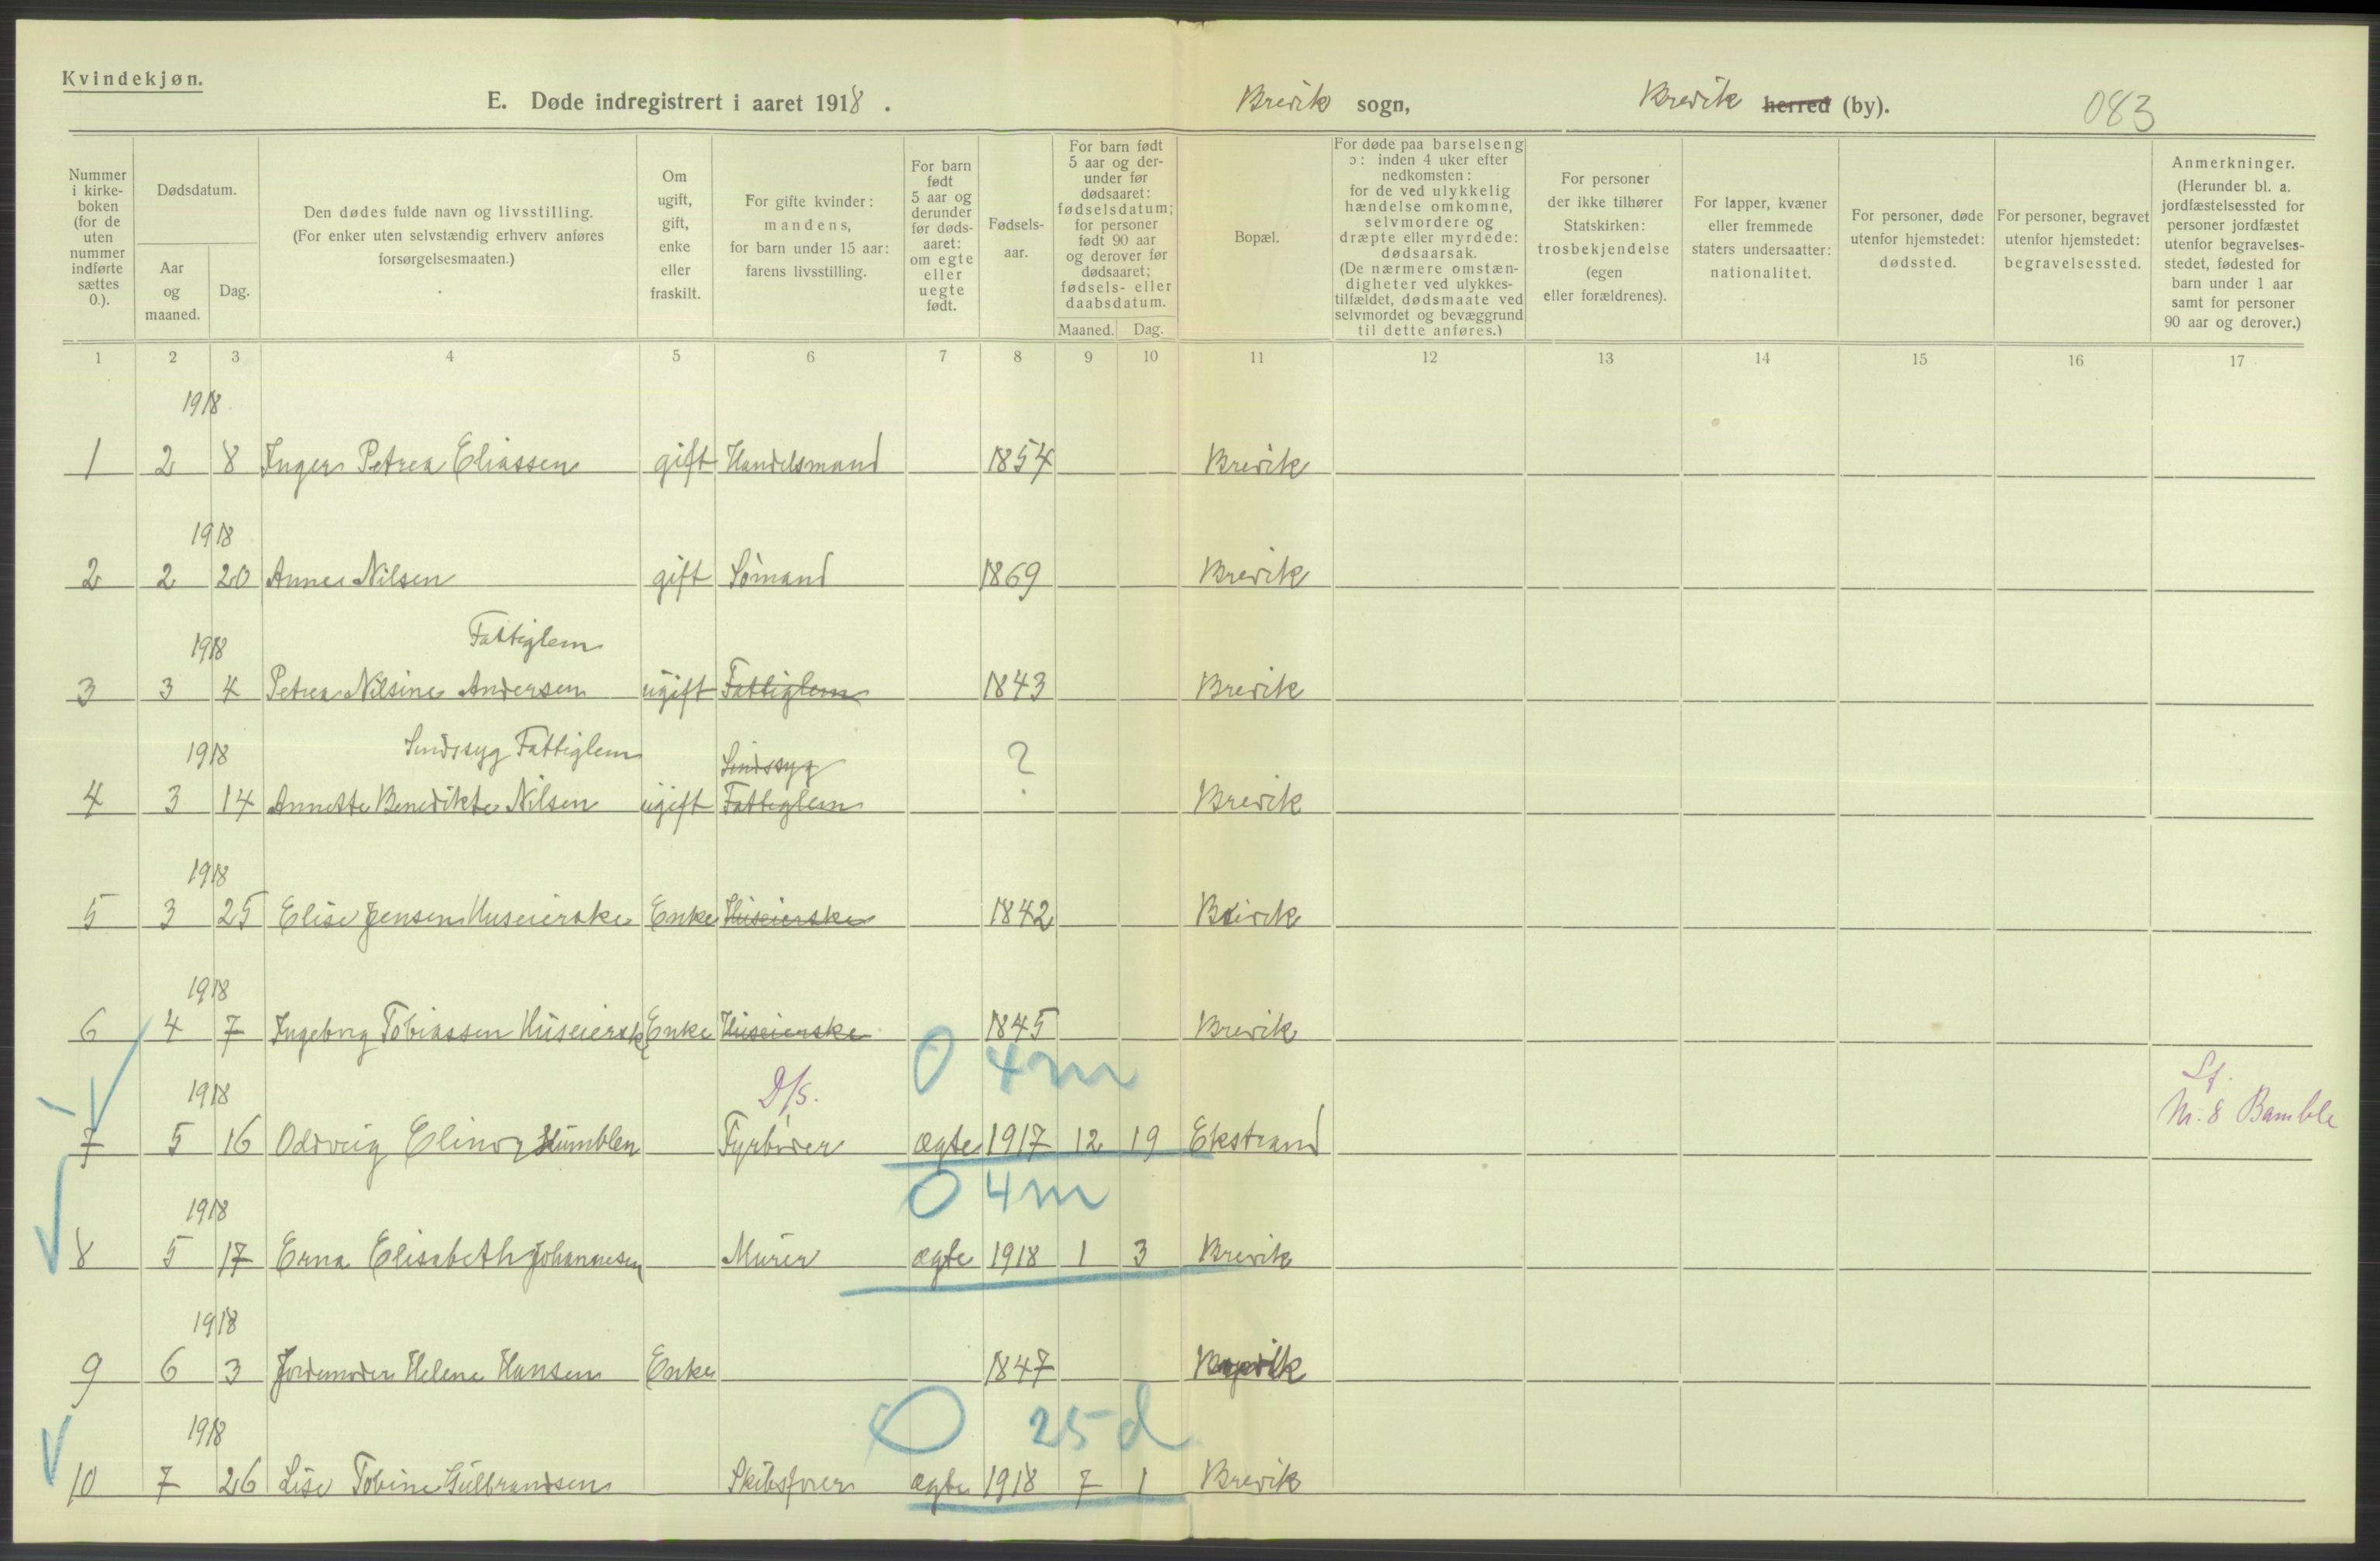 Kvindekjøn.
E. Døde indregistrert i aaret 1918.
Brevik sogn,
Brevik herred (by).
083
Nummer i kirke-boken (for de uten nummer indførte sættes 0.).
Dødsdatum.
Aar og maaned.
Dag.
Den dødes fulde navn og livsstilling.
(For enker uten selvstændig erhverv anføres forsørgelsesmaaten.)
Om ugift, gift, enke eller fraskilt.
For gifte kvinder: mandens, for barn under 15 aar: farens livsstilling.
For barn født 5 aar og derunder før døds-aaret: om egte eller uegte født.
Fødsels-aar.
For barn født 5 aar og der-under før dødsaaret: fødselsdatum; for personer født 90 aar og derover før dødsaaret; fødsels- eller daabsdatum.
Maaned.
Dag.
Bopæl.
For døde paa barselseng ɔ: inden 4 uker efter nedkomsten: for de ved ulykkelig hændelse omkomne, selvmordere og dræpte eller myrdede: dødsaarsak. (De nærmere omstæn-digheter ved ulykkes-tilfældet, dødsmaate ved selvmordet og bevæggrund til dette anføres.)
For personer der ikke tilhører Statskirken: trosbekjendelse (egen eller forældrenes).
For lapper, kvæner eller fremmede staters undersaatter: nationalitet.
For personer, døde utenfor hjemstedet: dødssted.
For personer, begravet utenfor hjemstedet: begravelsessted.
Anmerkninger.
(Herunder bl. a. jordfæstelsessted for personer jordfæstet utenfor begravelses-stedet, fødested for barn under 1 aar samt for personer 90 aar og derover.)
1 2 3 4 5 6 7 8 9 10 11 12 13 14 15 16 17
1918
1 2 8 Inger Petrea Eliassen gift Handelsmand 1854 Brevik
1918
2 2 20 Anne Nilsen gift Sømand 1869 Brevik
1918 Fattiglem
3 3 4 Petrea Nilsine Andersen ugift Fattiglem 1843 Brevik
1918 Sindssyg Fattiglem Sindssyg ?
4 3 14 Annette Benedikte Nilsen ugift Fattiglem Brevik
1918
5 3 25 Elise Jensen Huseierske Enke Huseierske 1842 Brevik
1918
6 4 7 Ingeborg Tobiassen Huseierske Enke Huseierske 1845 Brevik
0 4m
1918 D/s. Lf.
7 5 16 Oddveig Elinor Humblen Fyrbøder ægte 1917 12 19 Ekstrand Nr. 8 Bamble
0 4m
1918
8 5 17 Erna Elisabeth Johannesen Murer ægte 1918 1 3 Brevik
1918
9 6 3 Jordemoder Helene Hansen Enke 1847 Brevik
0 25d
1918
10 7 26 Lise Tobine Gulbrandsen Skibsfører ægte 1918 7 1 Brevik